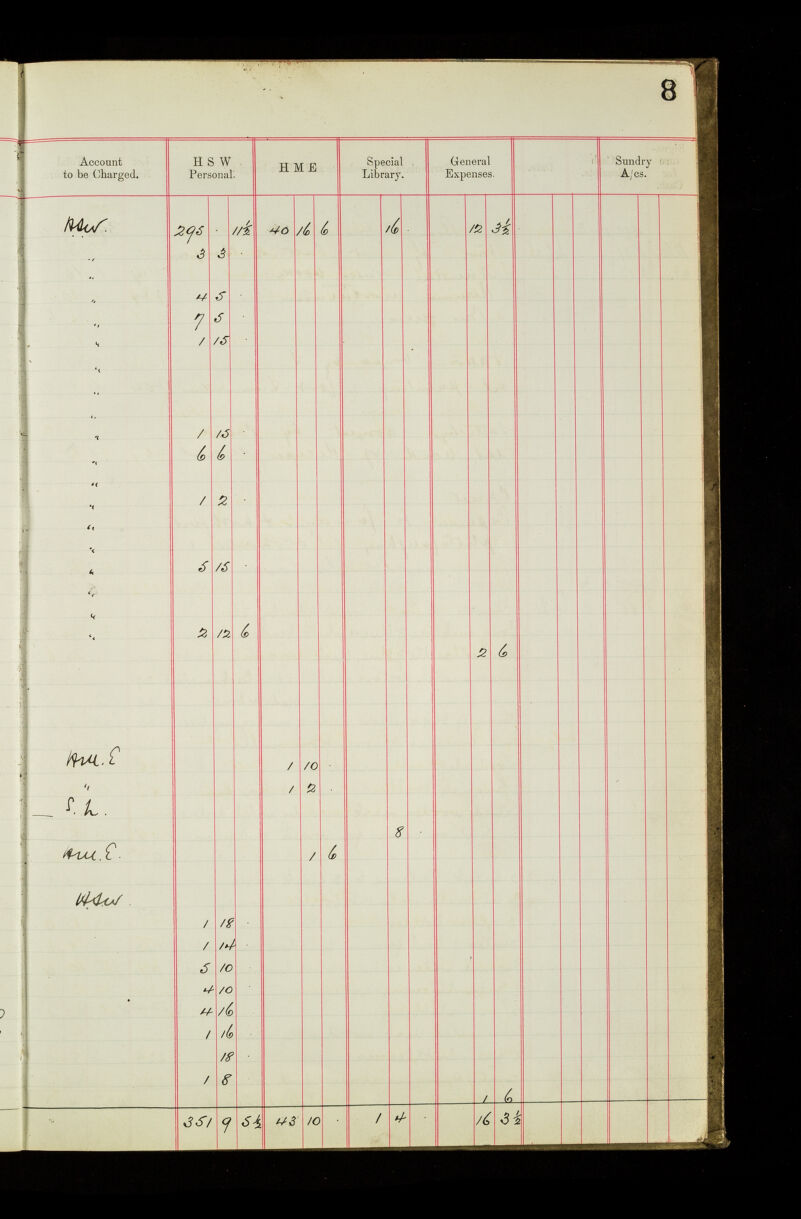 8
Account to be Charged. H S W Personal. H M E Special Library. General Expenses. Sundry A/cs.
HSW. 295 · 11½ 40 16 6 16 · 12 3½
" 3 3 ·
"
" 4 5 ·
" 7 5 ·
" 1 15 ·
"
"
"
" 1 15 ·
" 6 6 ·
"
" 1 2 ·
"
"
" 5 15 ·
"
"
" 2 12 6
2 6
HM.E 1 10 ·
" 1 2 ·
S. L. 8 ·
HM.E. 1 6
HSW.
1 18 ·
1 14 ·
5 10
4 10 ·
4 16
1 16
18 ·
1 8
1 6
351 9 5½ 43 10 · 1 4 · 16 3½